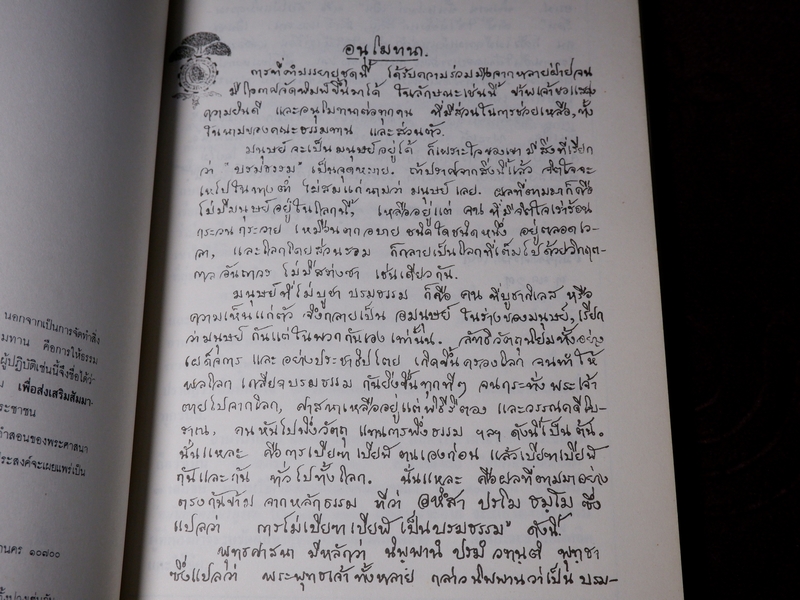 อนุโมทนา.
การที่คำบรรยายชุดนี้ ได้รับความร่วมมือจากหลายฝ่ายจน
มีโอกาสจัดพิมพ์ขึ้นมาได้ ในลักษณะเช่นนี้ ข้าพเจ้าขอแสดง
ความยินดี และอนุโมทนาต่อทุกคน ที่มีส่วนในการช่วยเหลือ, ทั้ง
ในนามของคณะธรรมทาน และส่วนตัว.
มนุษย์จะเป็นมนุษย์อยู่ได้ ก็เพราะใจของเขา มีสิ่งที่เรียก
ว่า "บรมธรรม" เป็นจุดหมาย. ถ้าปราศจากสิ่งนี้แล้ว จิตใจจะ
เหไปในทางต่ำ ไม่สมแก่นามว่า มนุษย์ เลย. ผลที่ตามมาก็คือ
ไม่มีมนุษย์อยู่ในโลกนี้, เหลืออยู่แต่ คนที่มีจิตใจเร่าร้อน
กระวนกระวาย เหมือนตกอบาย ชนิดใดชนิดหนึ่ง อยู่ตลอดเว-
ลา, และโลกโดยส่วนรวม ก็กลายเป็นโลกที่เต็มไปด้วยวิกฤต-
กาลอันถาวร ไม่มีสร่างซา เช่นเดียวกัน.
มนุษย์ที่ไม่บูชา บรมธรรม ก็คือ คนที่บูชากิเลส หรือ
ความเห็นแก่ตัว จึงกลายเป็น อมนุษย์ ในร่างของมนุษย์, เรียก
ว่ามนุษย์ กันแต่ในพวกกันเอง เท่านั้น. ลัทธิวัตถุนิยมทั้งอย่าง
เผด็จการ และอย่างประชาธิปไตย เกิดขึ้นครองโลก จนทำให้
พลโลก เกลียดบรมธรรม กันยิ่งขึ้นทุกทีๆ จนกระทั่ง พระเจ้า
ตายไปจากโลก, ศาสนาเหลืออยู่แต่พิธีรีตอง และวรรณคดีโบ-
ราณ, คนหันไปพึ่งวัตถุ แทนการพึ่งธรรม ฯลฯ ดังนี้เป็นต้น.
นั่นแหละ คือการเบียดเบียฬตนเองก่อน แล้วเบียดเบียฬ
กันและกัน ทั่วไปทั้งโลก. นั่นแหละ คือผลที่ตามมาอย่าง
ตรงกันข้าม จากหลักธรรม ที่ว่า อหึสา ปรโม ธมฺโม ซึ่ง
แปลว่า การไม่เบียดเบียฬ เป็นบรมธรรม" ดังนี้.
พุทธศาสนา มีหลักว่า นิพฺพานํ ปรมํ วทนฺติ พุทฺธา
ซึ่งแปลว่า พระพุทธเจ้าทั้งหลาย กล่าวนิพพานว่าเป็น บรม-
นอกจากเป็นการจัดทำสิ่ง
มทาน คือการให้ธรรม
ผู้ปฏิบัติเช่นนี้จึงชื่อได้ว่
เพื่อส่งเสริมสัมมา-
ระชาชน
คำสอนของพระศาสนา
ระสงค์จะเผยแพร่เป็น
านคร ๑๐๗๐๐